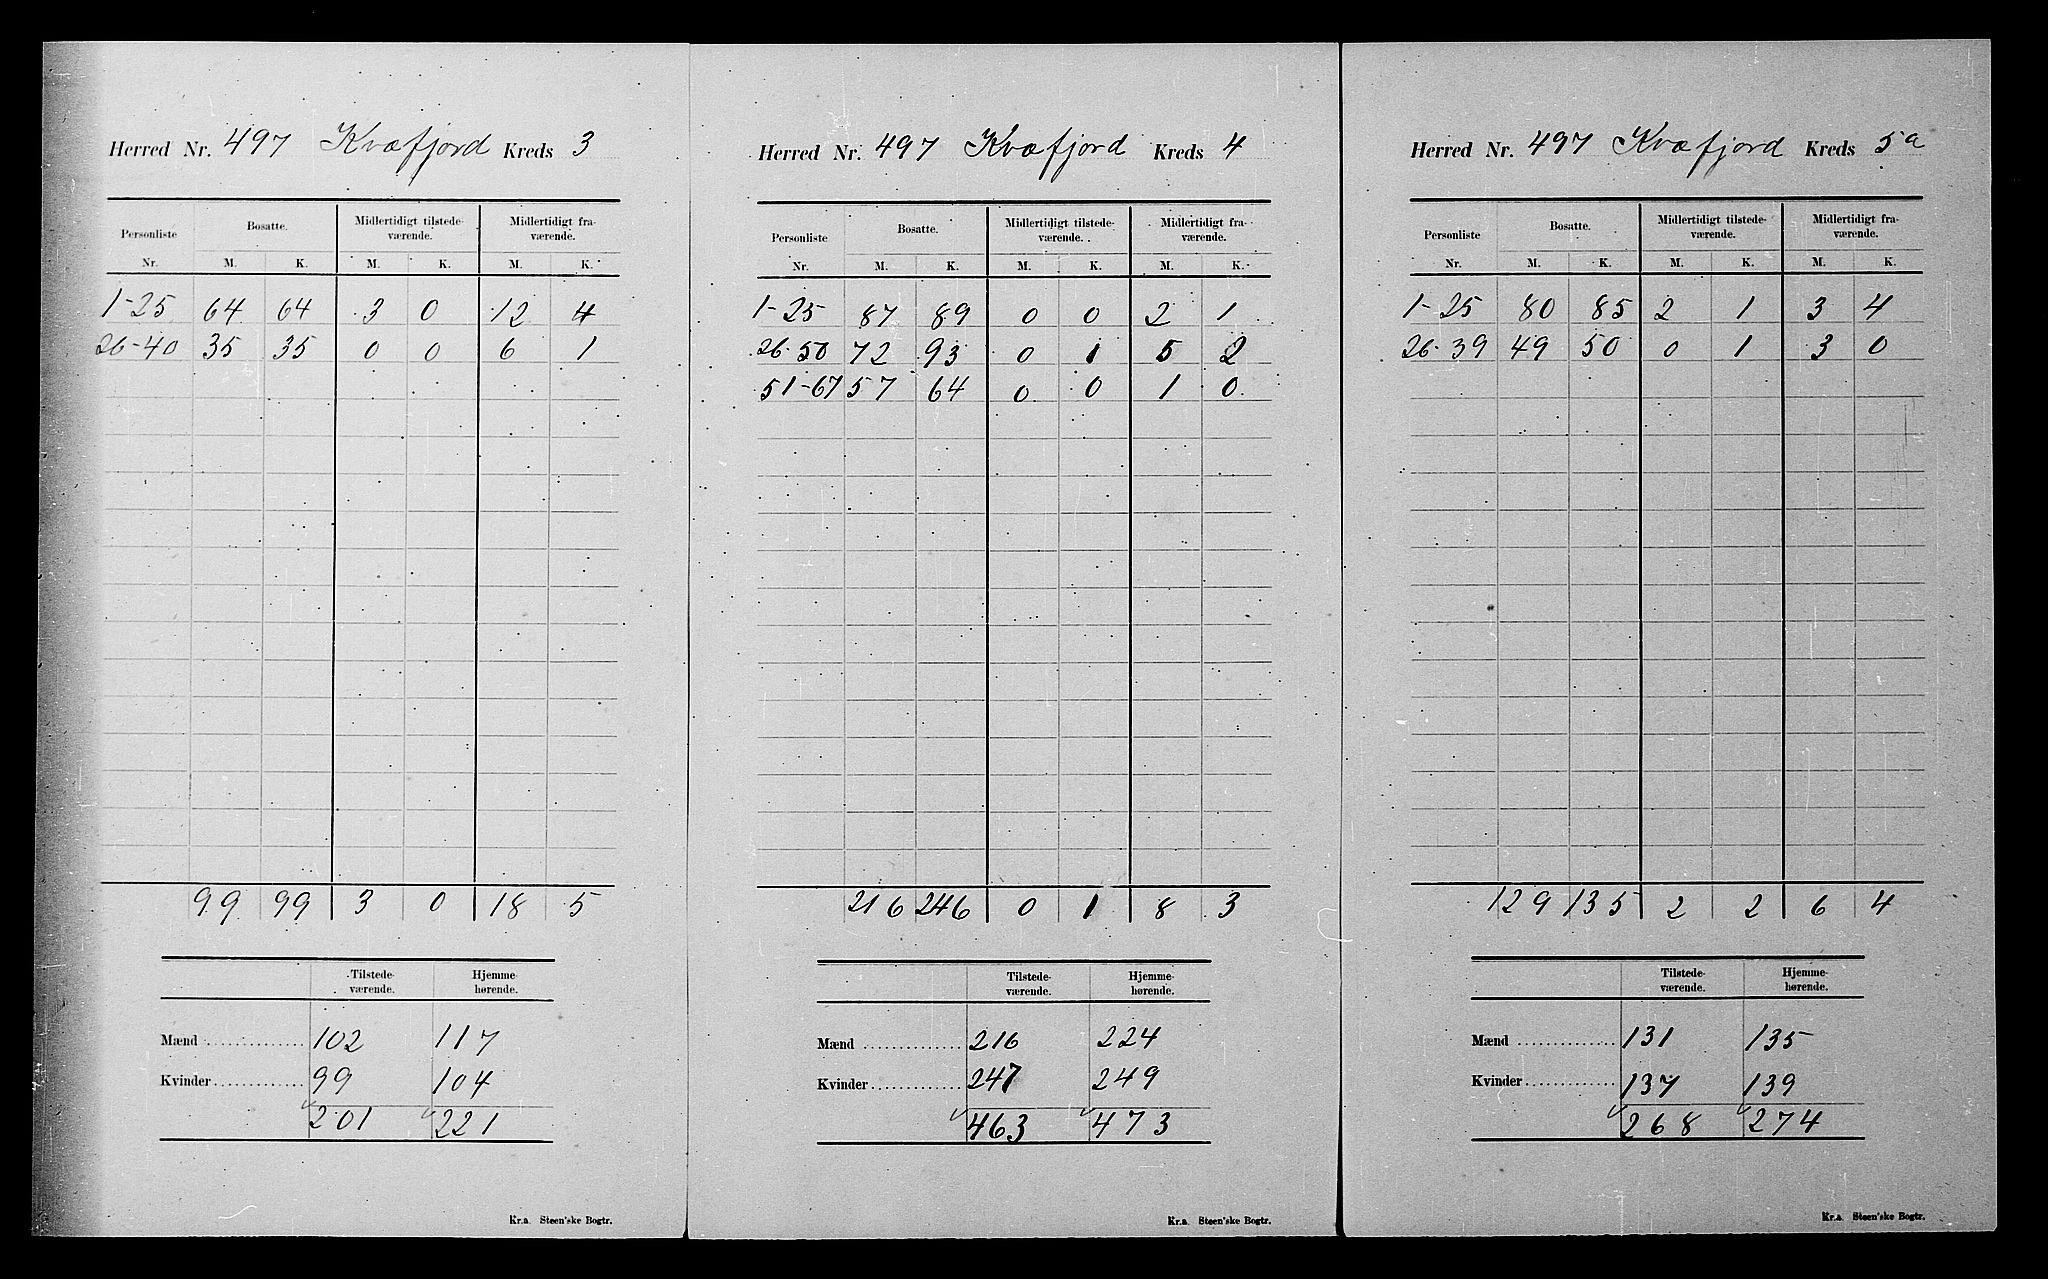 Herred Nr. 497 Kvæfjord Kreds 3
Personliste Bosatte. Midlertidigt tilstede- Midlertidigt fra-
værende. værende.
Nr. M. K. M. K. M. K.
1-25 64 64 3 0 12 4
26-40 35 35 0 0 6 1
99 99 3 0 18 5
Tilstede- Hjemme-
værende. hørende.
Mænd 102 117
Kvinder 99 104
201 221
Kr.a. Steen'ske Bogtr.
Herred Nr. 497 Kvæfjord Kreds 4
Personliste Bosatte. Midlertidigt tilstede- Midlertidigt fra-
værende. værende.
Nr. M. K. M. K. M. K.
1-25 87 89 0 0 2 1
26-50 72 93 0 1 5 2
51-67 57 64 0 0 1 0
216 246 0 1 8 3
Tilstede- Hjemme-
værende. hørende.
Mænd 216 224
Kvinder 247 249
463 473
Kr.a. Steen'ske Bogtr.
Herred Nr. 497 Kvæfjord Kreds 5a
Personliste Bosatte. Midlertidigt tilstede- Midlertidigt fra-
værende. værende.
Nr. M. K. M. K. M. K.
1-25 80 85 2 1 3 4
26-39 49 50 0 1 3 0
129 135 2 2 6 4
Tilstede- Hjemme-
værende. hørende.
Mænd 131 135
Kvinder 137 139
268 274
Kr.a. Steen'ske Bogtr.